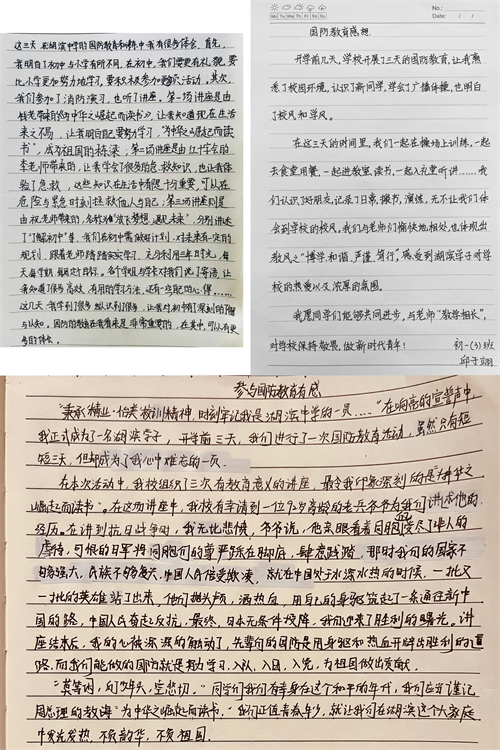 这三天在湖滨中学的国防教育和训练中我有很多体会。首先，
我明白了初中与小学有所不同，在初中，我们要更有礼貌，要
比小学更加努力地学习，要积极参加团队活动，其次，
我们参加了消防演习，也听了讲座。第一场讲座是由
老师带来的《为中华之崛起而读书》，让我知道现在生活
来之不易，让我明白自己要努力学习，"为中华之崛起而读
书"，成为祖国的栋梁；第二场讲座是由红十字会的
李老师带来的，让我学会了很多急救知识，也让我体
验了急救，这些知识在生活中有很十分重要，可以在
危险与紧急时刻拯救他人与自己；第三场讲座则是
由权老师带来的，名称为"放飞梦想，遇见未来"，分别讲述
了"了解初中"等，我们在初中需做好计划，对未来有一定的
规划，跟着老师踏踏实实学习，充分利用三年时光，每
天每学期都对自己。各个班组与学校对我们说了寄语，让
者知道了很多高效、有用的学习方法，还有一定要的心得……
这几天我学到了很多，也认识到了很多，让我对初中有了深刻的了解
与认知，国防的教育在我看来是非常重要的，在其中，可以有更
多的成长。
No.:
Mo Tu We Th Fr Sa Su
Date: / /
国防教育感想
开学前几天，学校开展了三天的国防教育，让我熟
悉了校园环境，认识了新同学，学会了广播体操，也明白
了校风和学风。
在这三天的时间里，我们一起在操场上训练，一起
去食堂用餐，一起进教室读书，一起入礼堂听讲……我
们认识了新朋友，记录了日常，操节，演练，无不让我们体
会到学校的校风，我们与老师们愉快地相处，也体现出
教风之"博学、和谐、严谨、笃行"，感受到湖滨学子对学
校的热爱以及浓厚的氛围。
我愿同学们能够共同进步，与老师"教学相长"，
对学校保持敬畏，做新时代青年！
初一(3)班
邱子翊
参与国防教育有感
"秉承精业·怡美校训精神，时刻牢记我是湖滨中学的一员……"在响亮的宣誓声中，
我正式成为了一名湖滨学子，开学前三天，我们进行了一次国防教育活动，虽然只有短
短三天，但却成为了我心中难忘的一页。
在本次活动中，我校组织了三次有教育意义的讲座，最令我印象深刻的是"为中华之
崛起而读书"。在这场讲座中，我校有幸请到一位92岁高龄的老兵爷爷为我们讲述他的
经历。在讲到抗日战争时，我无比悲愤，爷爷说，他亲眼看着同胞们受尽了日人的
虐待，可恨的日军将同胞们的尊严踩在脚底，肆意践踏，那时我们的国家不
够强大，民族不够奋矢，中国人民倍受欺凌，就在中国处于水深火热的时候，一批又
一批的英雄站了出来，他们抛头颅，洒热血，用自己的身躯筑起了一条通往新中
国的路，中国人民奋起反抗，最终，日本无条件投降，我们迎来了胜利的曙光。讲
座结束后，我的心被深深的触动了，先辈们的国防是用身躯和热血开辟出胜利的道
路，而我们能做的国防就是努力学习，入队、入团、入党，为祖国做出贡献。
"莫等闲，白了少年头，空悲切。"同学们我们有幸身在这个和平的年代，我们应当谨记
周总理的教诲"为中华之崛起而读书。"我们正值青春年少，就让我们在湖滨这个大家庭
中发光发热，不负韶华，不负祖国。